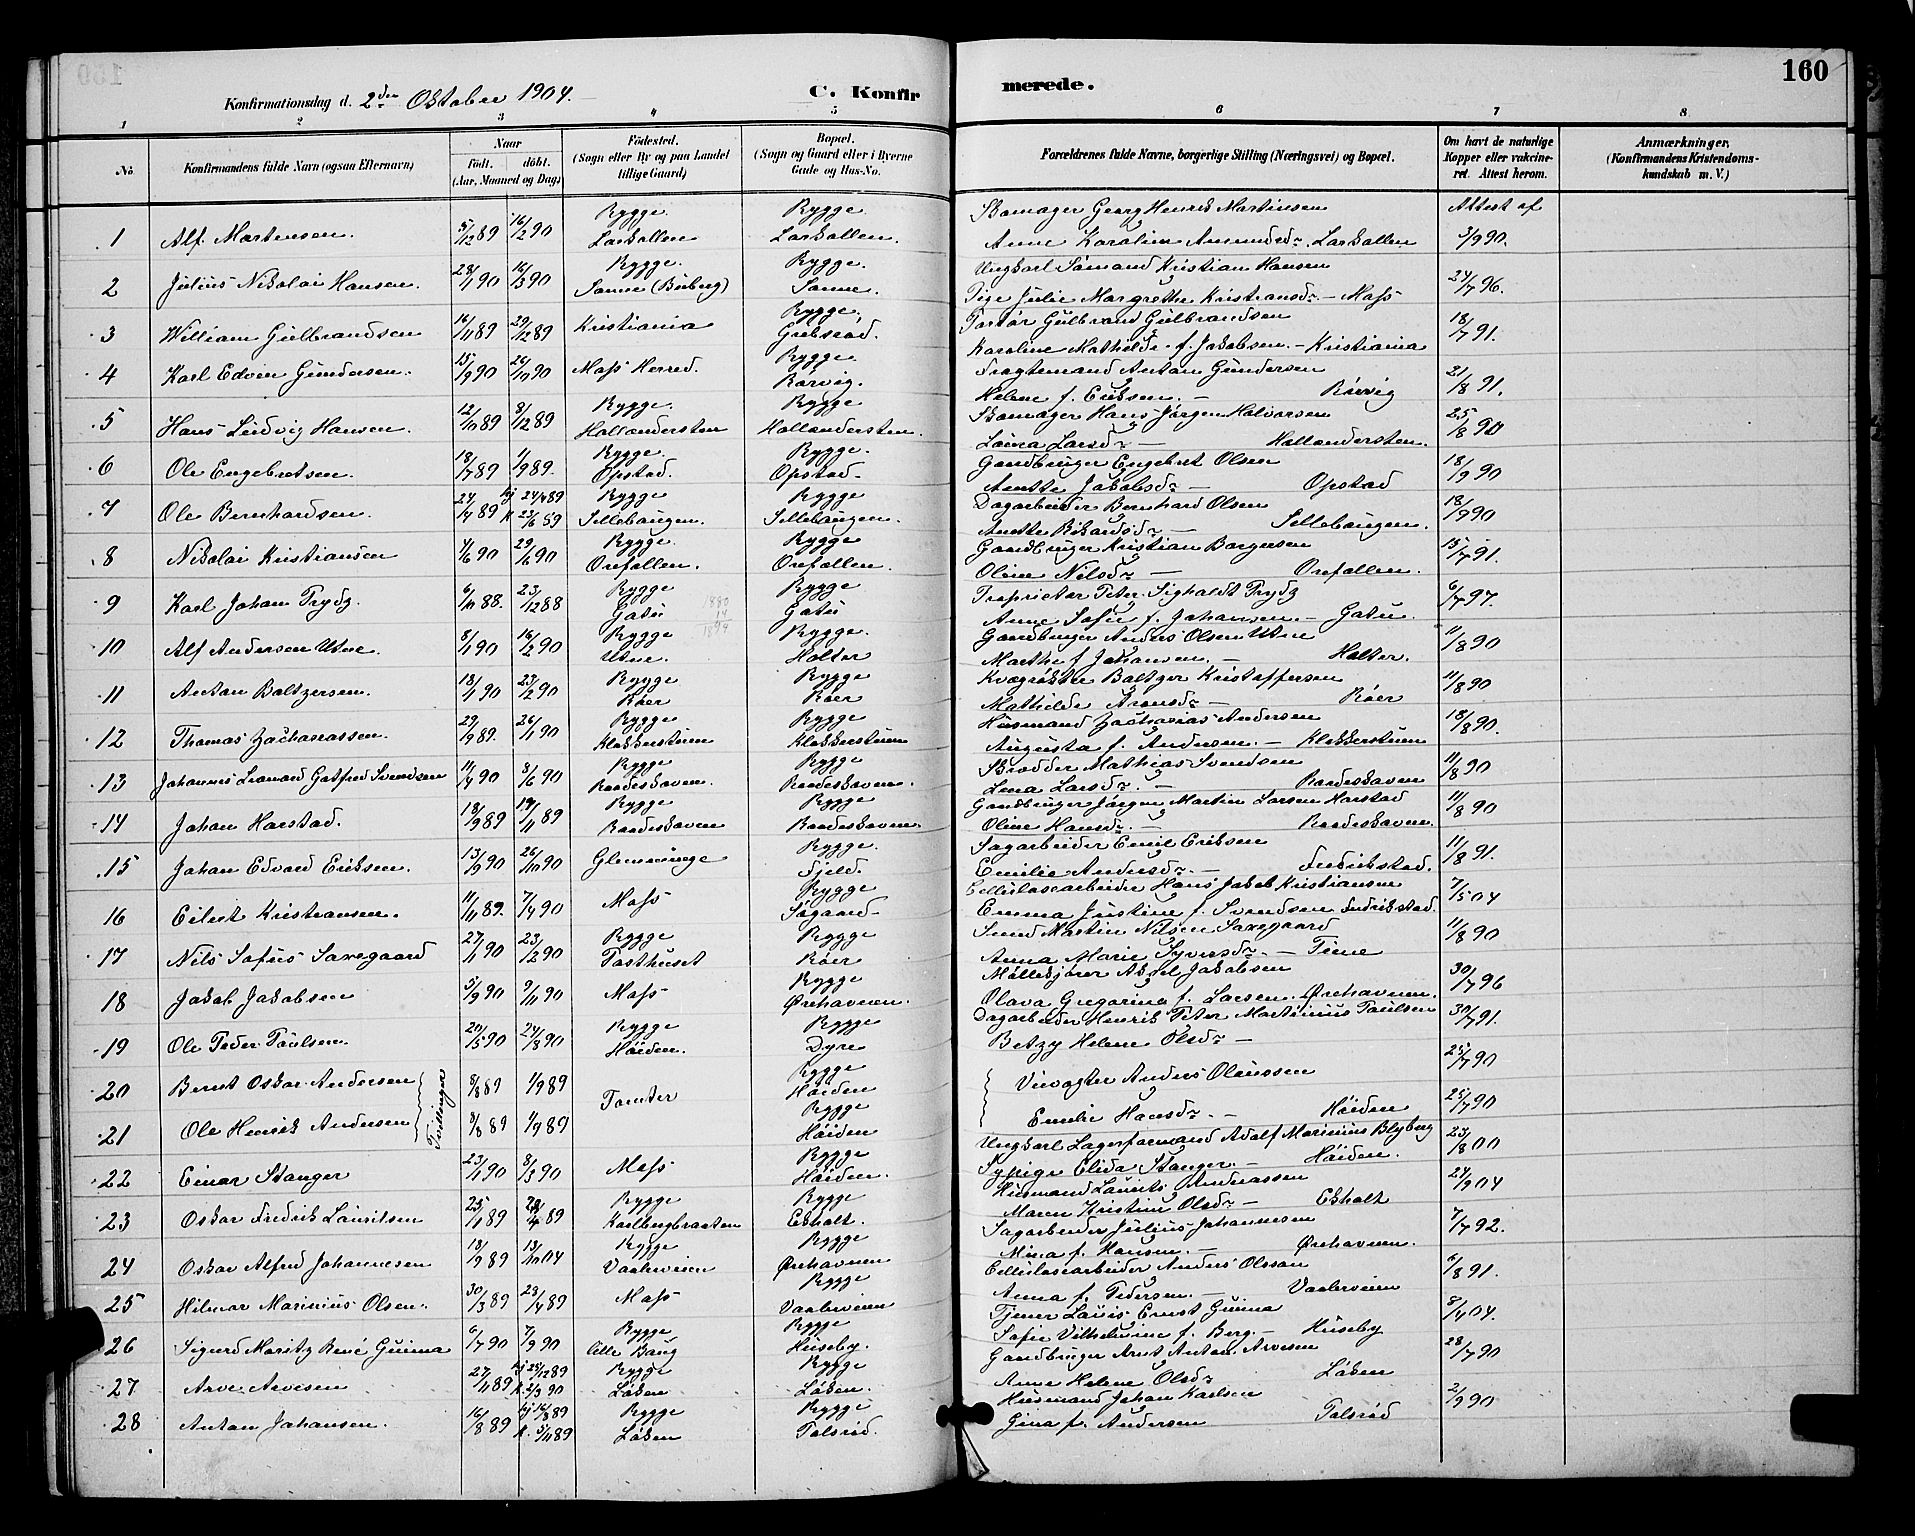 160
Konfirmationsdag d. 2den Oktober 1904.
C. Konfirmerede.
1 2 3 4 5 6 7 8
No
Konfirmandens fulde Navn (ogsaa Efternavn)
Naar
Födt. döbt.
(Aar, Maaned og Dag)
Födested.
(Sogn eller By og paa Landet tillige Gaard)
Bopæl.
(Sogn og Gaard eller i Byerne Gade og Hus-No.
Forældrenes fulde Navne, borgerlige Stilling (Næringsvei) og Bopæl.
Om havt de naturlige Kopper eller vakcineret. Attest herom.
Anmærkninger,
(Konfirmandens Kristendomskundskab m. V.)
1 Alf Martensen. 5/12 89 16/2 90 Rygge Larkollen Rygge. Larkollen. Skomager Georg Henrik Martinsen Anne Karoline Amundsdr. Larkollen Attest af 3/9 90.
2 Julius Nikolai Hansen. 28/1 90 16/3 90 Rygge. Sanne (Buberg) Rygge. Sanne. Ungkarl Sömand Kristian Hansen Pige Julie Margrethe Kristiansdr. – Moss 24/7 96.
3 William Gulbrandsen 16/11 89 29/12 89 Kristiania Rygge. Grebsrød. Gulbrand Gulbrandsen Karoline Mathilde f. Jakobsen. – Kristiania 18/7 91.
4 Karl Edvin Gundersen. 15/9 90 26/10 90 Moss Herred. Rygge. Rørvig. Fragtemand Anton Gundersen Helene f. Eriksen. – Rörvig 21/8 91.
5 Hans Ludvig Hansen. 12/10 89 8/12 89 Rygge. Hollendersten Rygge Hollandersten. Skomager Hans Jörgen Halvorsen Laura Larsdr. – Hollandersten. 25/8 90
6 Ole Engebretsen. 18/7 89 1/9 89. Rygge. Opstad. Rygge. Opstad. Gaardbruger Engebret Olsen Anette Jakobsdr. – Opstad 18/9 90
7 Ole Bernhardsen. 24/4 89 hj 24/4 89 K 23/6 89 Rygge Sillebaugen. Rygge Sillebaugen. Dagarbeider Bernhard Olsen Anette Rikardsdr. – Sillebaugen. 18/9 90
8 Nikolai Kristiansen 4/6 90 29/6 90 Rygge. Orefallen. Rygge Orefallen. Gaardbruger Kristian Borgersen Oline Nilsdr. – Orefallen. 15/7 91.
9 Karl Johan Prydz. 6/11 88. 23/12 88 Rygge Gatu Rygge Gatu Proprietær Peter Sigholdt Prydz Anne Sofie f. Johansen. – Gatu. 6/7 97.
1880
14
1894
10 Alf Andersen Utne. 8/1 90 16/2 90 Rygge Utne. Rygge. Halter Gaardbruger Anders Olsen Utne Marthe f. Johansen. – Halter. 11/8 90
11 Anton Baltzersen. 18/1 90 23/2 90 Rygge Roer Rygge Röer Kvægrøkter Baltzer Kristoffersen Mathilde Aronsdr. – Röer 11/8 90
12 Thomas Zachariassen. 29/9 89. 26/1 90 Rygge Klokkerstuen Rygge Klokkerstuen Husmand Zacharias Andersen Augusta f. Andersen. – Klokkerstuen 18/8 90.
13 Johannes Leonard Gotfred Svendsen 11/4 90 8/6 90 Rygge Roadeskoven. Rygge Roadeskoven. Skrædder Mathias Svendsen Lena Larsdr. – Roadeskoven 11/8 90
14 Johan Harstad. 18/9 89 17/11 89 Rygge Roadeskoven Rygge Roadeskoven. Gaardbruger Jörgen Martin Larsen Harstad Oline Hansdr. – Roadeskoven. 11/8 90
15 Johan Edvard Eriksen. 13/9 90 26/10 90 Glemminge Rygge. Fjeld. Sagarbeider Emil Eriksen Emilie Andersdr. – Fredrikstad. 11/8 91.
16 Eilert Kristiansen. 11/11 89. 7/4 90 Moss Rygge Sögaard. Cellulosearbeider Hans Jakob Kristiansen Emma Justine f. Svendsen Fredrikstad. 7/5 04
17 Nils Sofus Saxegaard 27/1 90 23/2 90 Rygge Posthuset Rygge Röer Smed Martin Nilsen Saxegaard Anna Marie Syversdr. – Time 11/8 90
18 Jakob Jakobsen 5/9 90 9/11 90 Moss Rygge Ørehavnen. Mölleskjörer Aksel Jakobsen Olava Gregorina f. Larsen. Ørehavnen. 30/7 96
19 Ole Peder Paulsen. 20/5 90 24/8 90 Rygge Höiden. Rygge Dyre Dagarbeider Henrik Peter Martinius Paulsen Betzy Helene Olsdr. – 30/7 91.
20 Bernt Oskar Andersen 8/8 89 1/9 89 Tomter Rygge Höiden Veivogter Anders Olaussen 25/7 90
Tvillinger
21 Ole Henrik Andersen 8/8 89 1/9 89 Rygge Höiden Emilie Hansdr. – Höiden 25/7 90
22 Einar Stanger 23/1 90 8/3 90 Moss Rygge Höiden. Ungkarl Lagerformand Adolf Marinius Blyberg Sypige Elida Stanger. – Höiden. 23/8 00
23 Oskar Fredrik Lauritsen 25/1 89 89 Rygge Karlbergbraaten Rygge Ekholt. Husmand Laurits Andreassen Maren Kristine Olsdr. – Ekholt 24/9 04
24 Oskar Alfred Johannesen 18/9 89 13/10 04 Rygge Vaalerveien Rygge Ørehavnen Sagarbeider Julius Johannesen Mina f. Hansen. – Ørehavnen. 7/7 92.
25 Hilmar Marinius Olsen. 30/3 89 28/4 89 Moss Rygge Vaalerveien Cellulosearbeider Anders Olsson Anna f. Pedersen. – Vaalerveien 6/8 91.
26 Sigurd Moritz René Gunna 6/7 90 7/9 90 Rygge Lille Baug Rygge Huseby. Tjener Louis Ernst Gunna Sofie Vilhelmine f. Berg. – Huseby 8/4 04.
27 Arve Arvesen 27/11 89 hj 25/12 89 K. 2/3 90 Rygge Löken Rygge Löken. Gaardbruger Arnt Anton Arvesen Anne Helene Olsdr. Löken 28/7 90
28 Anton Johansen. 16/8 89 hj 16/8 89 K. 5/11 89 Rygge Löken Rygge Tolsröd. Husmand Johan Karlsen Gina f. Andersen Tolsröd 2/9 90